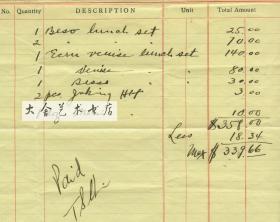 No. Quantity DESCRIPTION Unit Total Amount
1 Beso lunch set 25.00
2 " 70.00
1 Ecru venise lunch set 140.00
1 venise " 80.00
1 " 30.00
2 pcs 3.00
大众艺术书店
10.00
$358.00
Less 18.34
$339.66
Paid